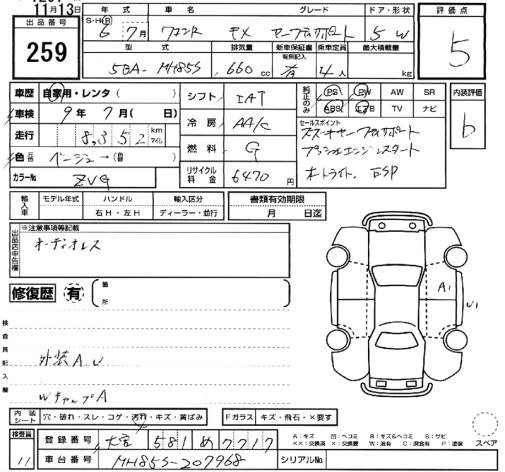 11月13日
出品番号
259
S・H・R 年式 車名 グレード ドア・形状
6年 7月 ワゴンR 5W
型式 排気量 新車保証書 有無記入 乗車定員 最大積載量
5BA-MH85S 660cc 有 4人 kg
評価点
5
車歴 自家用・レンタ( )
車検 9年 7月( )日
走行 8,352 km マイル
色 ベージュ→( )
カラーNo ZVG
シフト IAT
冷房 AA/C
燃料 G
リサイクル料金 6470円
純正のみ
PS PW AW SR
ABS エアB TV ナビ
セールスポイント
プッシュエンジンスタート
オートライト、ESP
内装評価
b
輸入車 モデル年式 ハンドル 輸入区分
右H・左H ディーラー・並行
書類有効期限
月 日迄
出品店申告欄
※注意事項等記載
オーディオレス
修復歴 有 箇所
A1
検査員記入欄
外装AU
WキャップA
内装シート 穴・破れ・スレ・コゲ・汚れ・キズ・黄ばみ
Fガラス キズ・飛石・×要す
スペア
検査員 11
登録番号 大宮 581 め 7717
A:キズ U:ヘコミ B:キズ&ヘコミ S:サビ
××:交換済 ×:要交換 W:波有 C:腐食有 P:塗装
車台番号 MH85S-207968
シリアルNo.